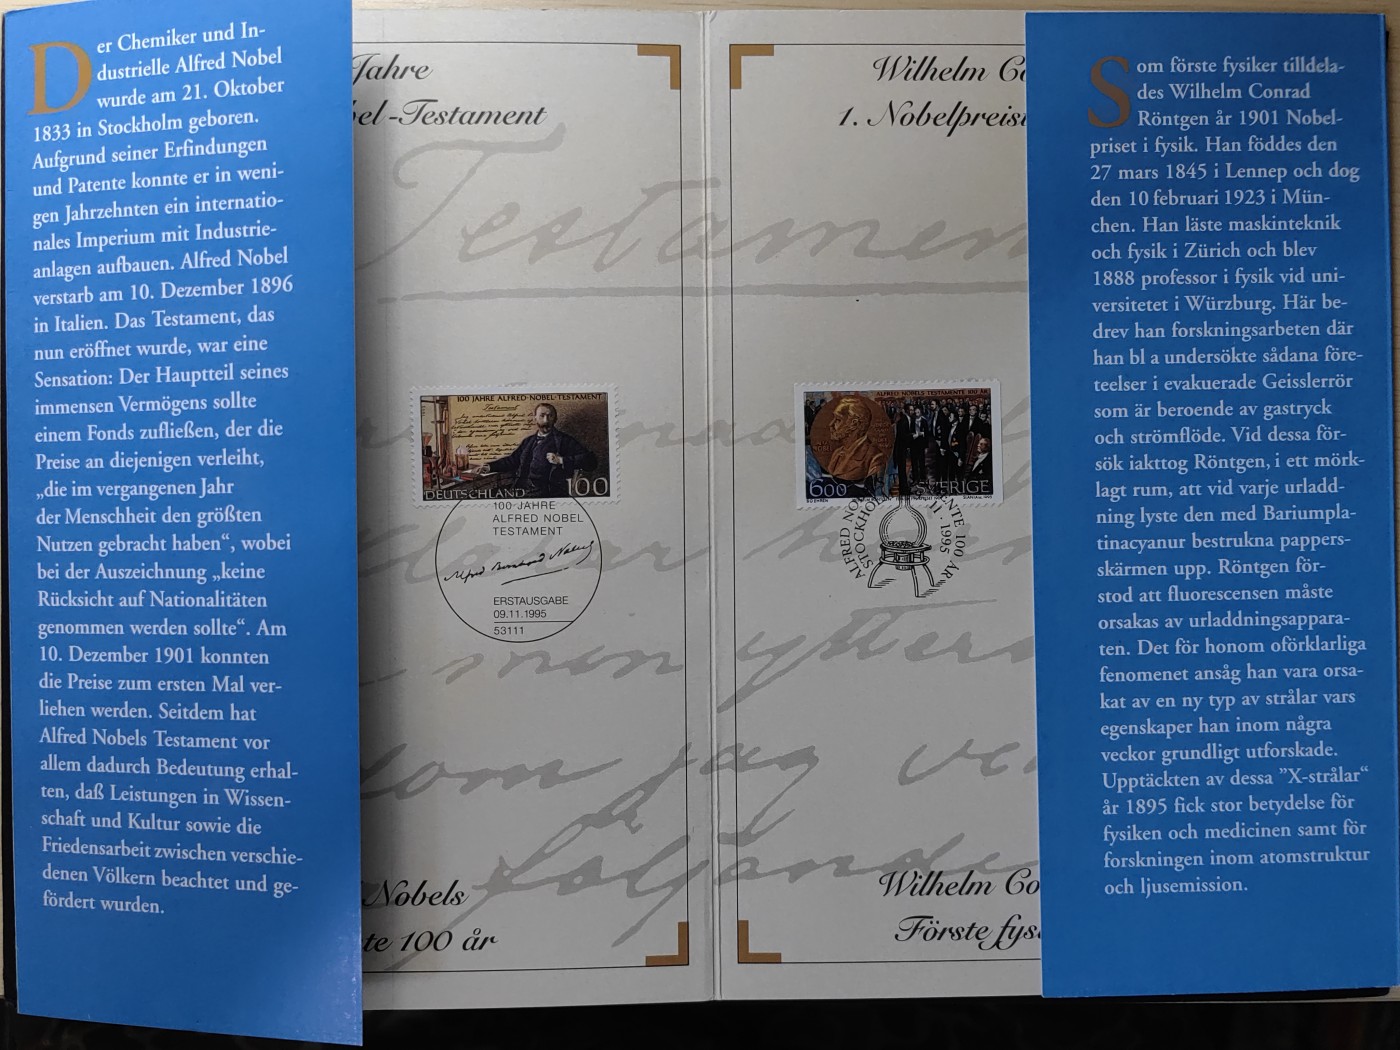 Der Chemiker und In-
dustrielle Alfred Nobel
wurde am 21. Oktober
1833 in Stockholm geboren.
Aufgrund seiner Erfindungen
und Patente konnte er in weni-
gen Jahrzehnten ein internatio-
nales Imperium mit Industrie-
anlagen aufbauen. Alfred Nobel
verstarb am 10. Dezember 1896
in Italien. Das Testament, das
nun eröffnet wurde, war eine
Sensation: Der Hauptteil seines
immensen Vermögens sollte
einem Fonds zufließen, der die
Preise an diejenigen verleiht,
„die im vergangenen Jahr
der Menschheit den größten
Nutzen gebracht haben“, wobei
bei der Auszeichnung „keine
Rücksicht auf Nationalitäten
genommen werden sollte“. Am
10. Dezember 1901 konnten
die Preise zum ersten Mal ver-
liehen werden. Seitdem hat
Alfred Nobels Testament vor
allem dadurch Bedeutung erhal-
ten, daß Leistungen in Wissen-
schaft und Kultur sowie die
Friedensarbeit zwischen verschie-
denen Völkern beachtet und ge-
fördert wurden.
Jahre
el-Testament
Testament
100 JAHRE ALFRED-NOBEL-TESTAMENT
Testament
DEUTSCHLAND 100
100 JAHRE
ALFRED NOBEL
TESTAMENT
Alfred Bernhard Nobel
ERSTAUSGABE
09.11.1995
53111
Nobels
te 100 år
Wilhelm Co
1. Nobelpreist
ALFRED NOBELS TESTAMENTE 100 ÅR
600 SVERIGE
ALFRED NO ENTE 100 ÅR
STOCKHO 11 · 1995
min yttersta
som jag ve
följande
Wilhelm Co
Förste fys
Som förste fysiker tilldela-
des Wilhelm Conrad
Röntgen år 1901 Nobel-
priset i fysik. Han föddes den
27 mars 1845 i Lennep och dog
den 10 februari 1923 i Mün-
chen. Han läste maskinteknik
och fysik i Zürich och blev
1888 professor i fysik vid uni-
versitetet i Würzburg. Här be-
drev han forskningsarbeten där
han bl a undersökte sådana före-
teelser i evakuerade Geisslerrör
som är beroende av gastryck
och strömflöde. Vid dessa för-
sök iakttog Röntgen, i ett mörk-
lagt rum, att vid varje urladd-
ning lyste den med Bariumpla-
tinacyanur bestrukna pappers-
skärmen upp. Röntgen för-
stod att fluorescensen måste
orsakas av urladdningsappara-
ten. Det för honom oförklarliga
fenomenet ansåg han vara orsa-
kat av en ny typ av strålar vars
egenskaper han inom några
veckor grundligt utforskade.
Upptäckten av dessa ”X-strålar“
år 1895 fick stor betydelse för
fysiken och medicinen samt för
forskningen inom atomstruktur
och ljusemission.